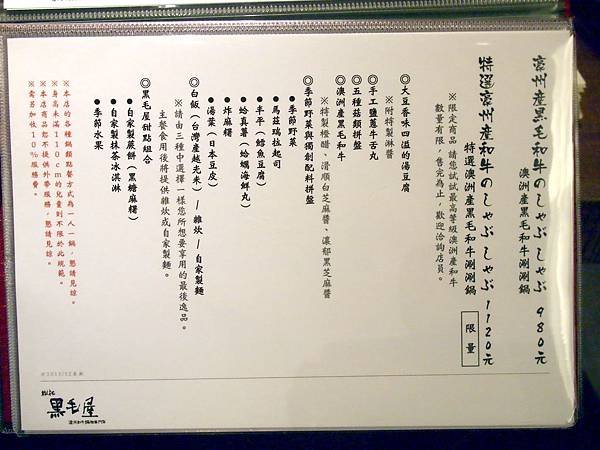 豪州産黒毛和牛のしゃぶしゃぶ 980元
澳洲產黑毛和牛涮涮鍋
特選豪州産和牛のしゃぶしゃぶ 1120元
特選澳洲產黑毛和牛涮涮鍋 限量
※限定商品 請您試試最高等級澳洲產和牛
數量有限，售完為止，歡迎洽詢店員。
◎大豆香味四溢的湯豆腐
※附特製淋醬
◎手工鹽蔥牛舌丸
◎五種菇類拼盤
◎澳洲產黑毛和牛
※特製橙醋、滑順白芝麻醬、濃郁黑芝麻醬
◎季節野菜與獨創配料拼盤
●季節野菜
●馬茲瑞拉起司
●半平（鱈魚豆腐）
●蛤真薯（蛤蠣海鮮丸）
●炸麻糬
●湯葉（日本豆皮）
◎白飯（台灣產越光米）/ 雜炊 / 自家製麵
※請由三種中選擇一樣您所想要享用的最後逸品。
主餐食用後將提供雜炊或自家製麵。
◎黑毛屋甜點組合
●自家製蕨餅（黑糖麻糬）
●自家製抹茶冰淇淋
●季節水果
※本店的各種鍋類點餐方式為一人一鍋，懇請見諒。
※身高未滿110cm的兒童則不限於此規範。
※本店商品恕不提供外帶服務，懇請見諒。
※需另加收10％服務費。
黒毛屋